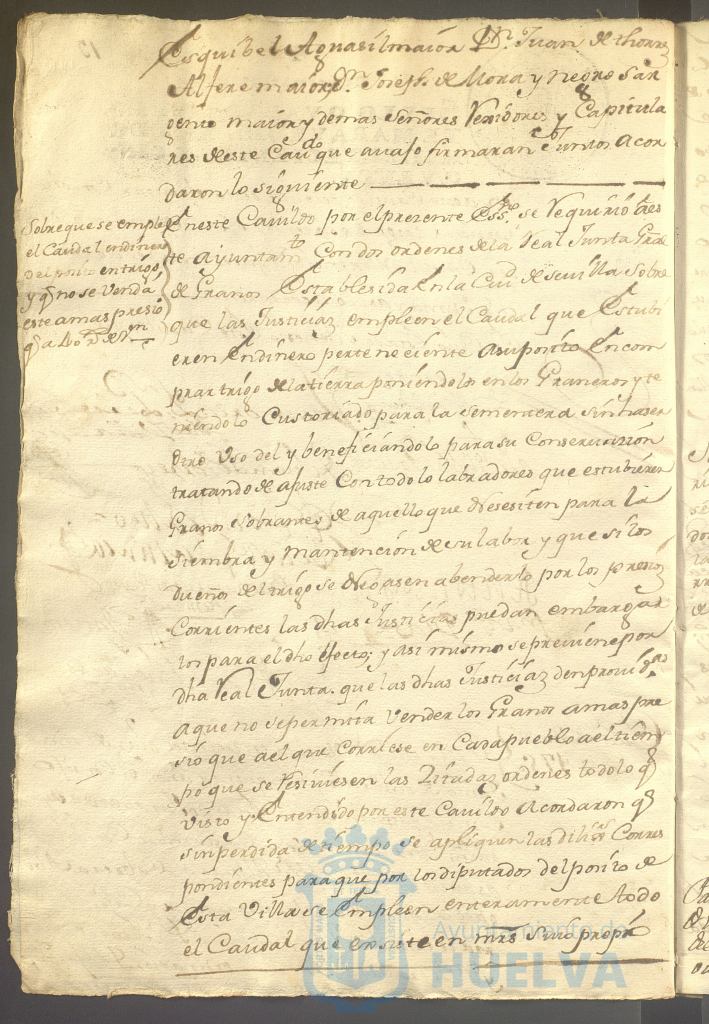 Esquibel Aguasil maior Dn. Juan de thorres
Alferes maior Dn. Joseph de Mora y negro Sar
gento maior y demas Señores Rexidores y Capitula
res deste Caudo que auajo firmaran e Juntos acor
daron lo siguiente
Sobre que se emplee
el Caudal en dinero
del posito en trigo,
y q no se venda
este a mas presio
En este Cauildo por el prezente Essno se Requirio a es
te Ayuntamto Con dos ordenes de la Real Junta Grãl
de Granos Establesida En la Ciud de seuilla Sobre
que las Justicias empleen el Caudal que Estubi
eren En dinero perteneciente a su posito En com
prar trigo de la tierra poniendolo en los Graneros y te
niendolo Custoriado para la sementera sin haser
otro uso del y beneficiandolo para su Conseruazion
tratando de ajuste Con todo lo labradores que estubieren
Granos sobrantes de aquello que Nesesiten para la
siembra y mantencion de su labor y que si los
Dueños del trigo se Negasen a benderlo por los presios
Corrientes las dhas Justicias puedan embargar
los para el dho efecto; y asi mismo se preuiene por
dha Real Junta. que las dhas Justicias den prouidas
a que no se permita vender los Granos a mas pre
sio que a el que Corriese en Cada pueblo a el tiem
po que se Resiuiesen las Zitadas ordenes todo lo q
visto y Entendido por este Cauildo Acordaron q
sin perdida de tiempo se apliquen las dilixas Corres
pondientes para que por los diputados del posito de
Esta Villa se Empleen enteramente todo
el Caudal que ensiste en mrs suio propio
Ayuntamiento de
HUELVA